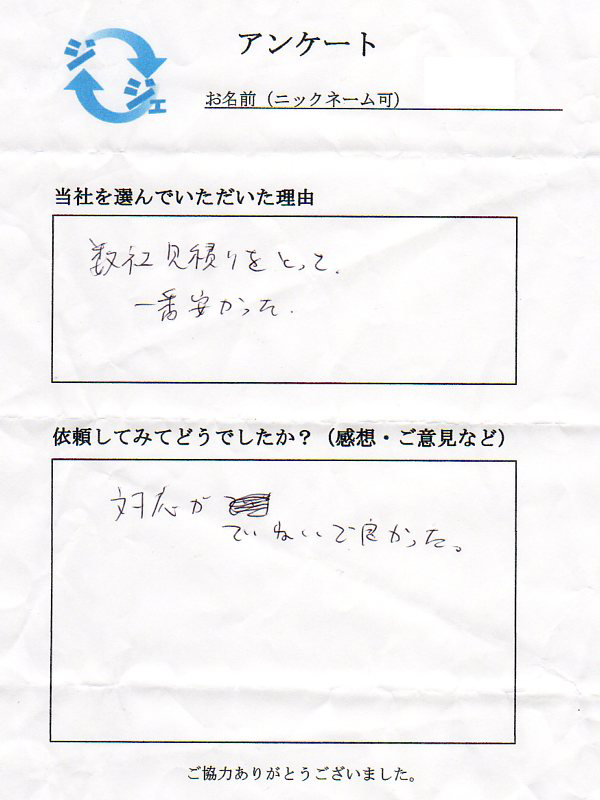 ジジェ
アンケート
お名前（ニックネーム可）
当社を選んでいただいた理由
数社見積りをとって、
一番安かった.
依頼してみてどうでしたか？（感想・ご意見など）
対応が
ていねいで良かった。
ご協力ありがとうございました。